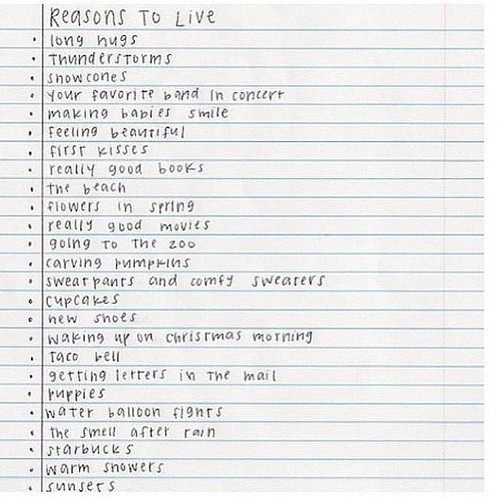 Reasons To Live
• long hugs
• thunderstorms
• snowcones
• your favorite band in concert
• making babies smile
• feeling beautiful
• first kisses
• really good books
• the beach
• flowers in spring
• really good movies
• going to the zoo
• carving pumpkins
• sweatpants and comfy sweaters
• cupcakes
• new shoes
• waking up on christmas morning
• Taco bell
• getting letters in the mail
• puppies
• water balloon fights
• the smell after rain
• starbucks
• warm showers
• sunsets